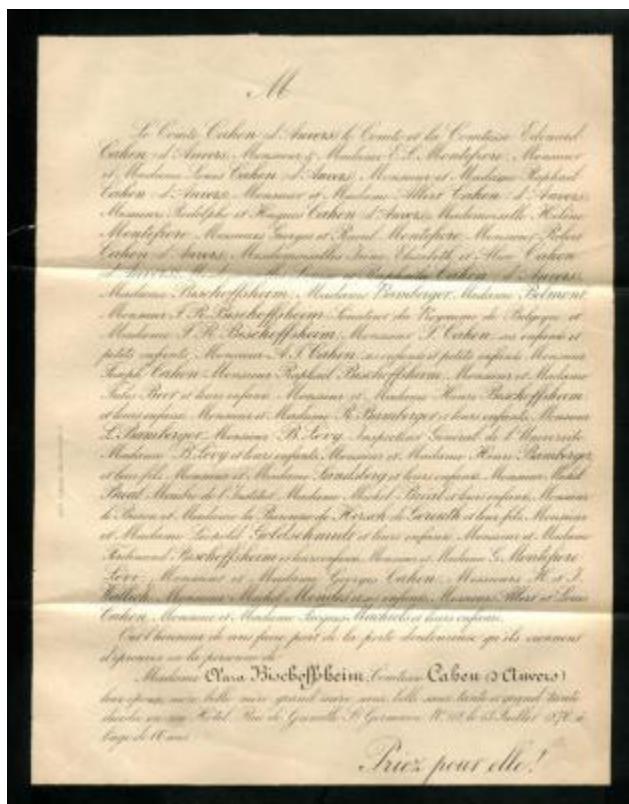 M
Le Comte Cahen d'Anvers, le Comte et la Comtesse Edouard
Cahen d'Anvers, Monsieur & Madame E. L. Montefiore, Monsieur
et Madame Louis Cahen d'Anvers, Monsieur et Madame Raphaël
Cahen d'Anvers, Monsieur et Madame Albert Cahen d'Anvers,
Messieurs Rodolphe et Hugues Cahen d'Anvers, Mademoiselle Hélène
Montefiore, Messieurs Georges et Raoul Montefiore, Monsieur Robert
Cahen d'Anvers, Mesdemoiselles Irène, Elisabeth et Alice Cahen
d'Anvers, et Cahen d'Anvers,
Madame Bischoffsheim, Madame Bamberger, Madame Belmont,
Monsieur J. R. Bischoffsheim, Sénateur du Royaume de Belgique et
Madame J. R. Bischoffsheim, Monsieur Cahen, ses enfants et
petits enfants, Monsieur Cahen, ses enfants et petits enfants, Monsieur
Joseph Cahen, Monsieur Raphaël Bischoffsheim, Monsieur et Madame
Jules Beer et leurs enfants, Monsieur et Madame Henri Bischoffsheim
et leurs enfants, Monsieur et Madame R. Bamberger et leurs enfants, Monsieur
L. Bamberger, Monsieur B. Lévy, Inspecteur Général de l'Université
Madame B. Lévy et leurs enfants, Monsieur et Madame Henri Bamberger
et leur fils, Monsieur et Madame Landsberg et leurs enfants, Monsieur Michel
Bréal, Membre de l'Institut, Madame Michel Bréal et leurs enfants, Monsieur
le Baron et Madame la Baronne de Hirsch de Gereuth et leur fils, Monsieur
et Madame Léopold Goldschmidt et leurs enfants, Monsieur et Madame
Ferdinand Bischoffsheim et leurs enfants, Monsieur et Madame G. Montefiore
Levi, Monsieur et Madame Georges Cahen, Messieurs H. et J.
Monsieur Michel et ses enfants, Messieurs Albert et Louis
Cahen, Monsieur et Madame Jacques et leurs enfants,
Ont l'honneur de vous faire part de la perte douloureuse qu'ils viennent
d'éprouver en la personne de
Madame Clara Bischoffsheim, Comtesse Cahen (d'Anvers)
leur épouse, mère, belle mère, grand'mère, sœur, belle sœur, tante et grand'tante,
décédée en son Hôtel, Rue de Grenelle St Germain, le Juillet 1876, à
l'âge de ans.
Priez pour elle!